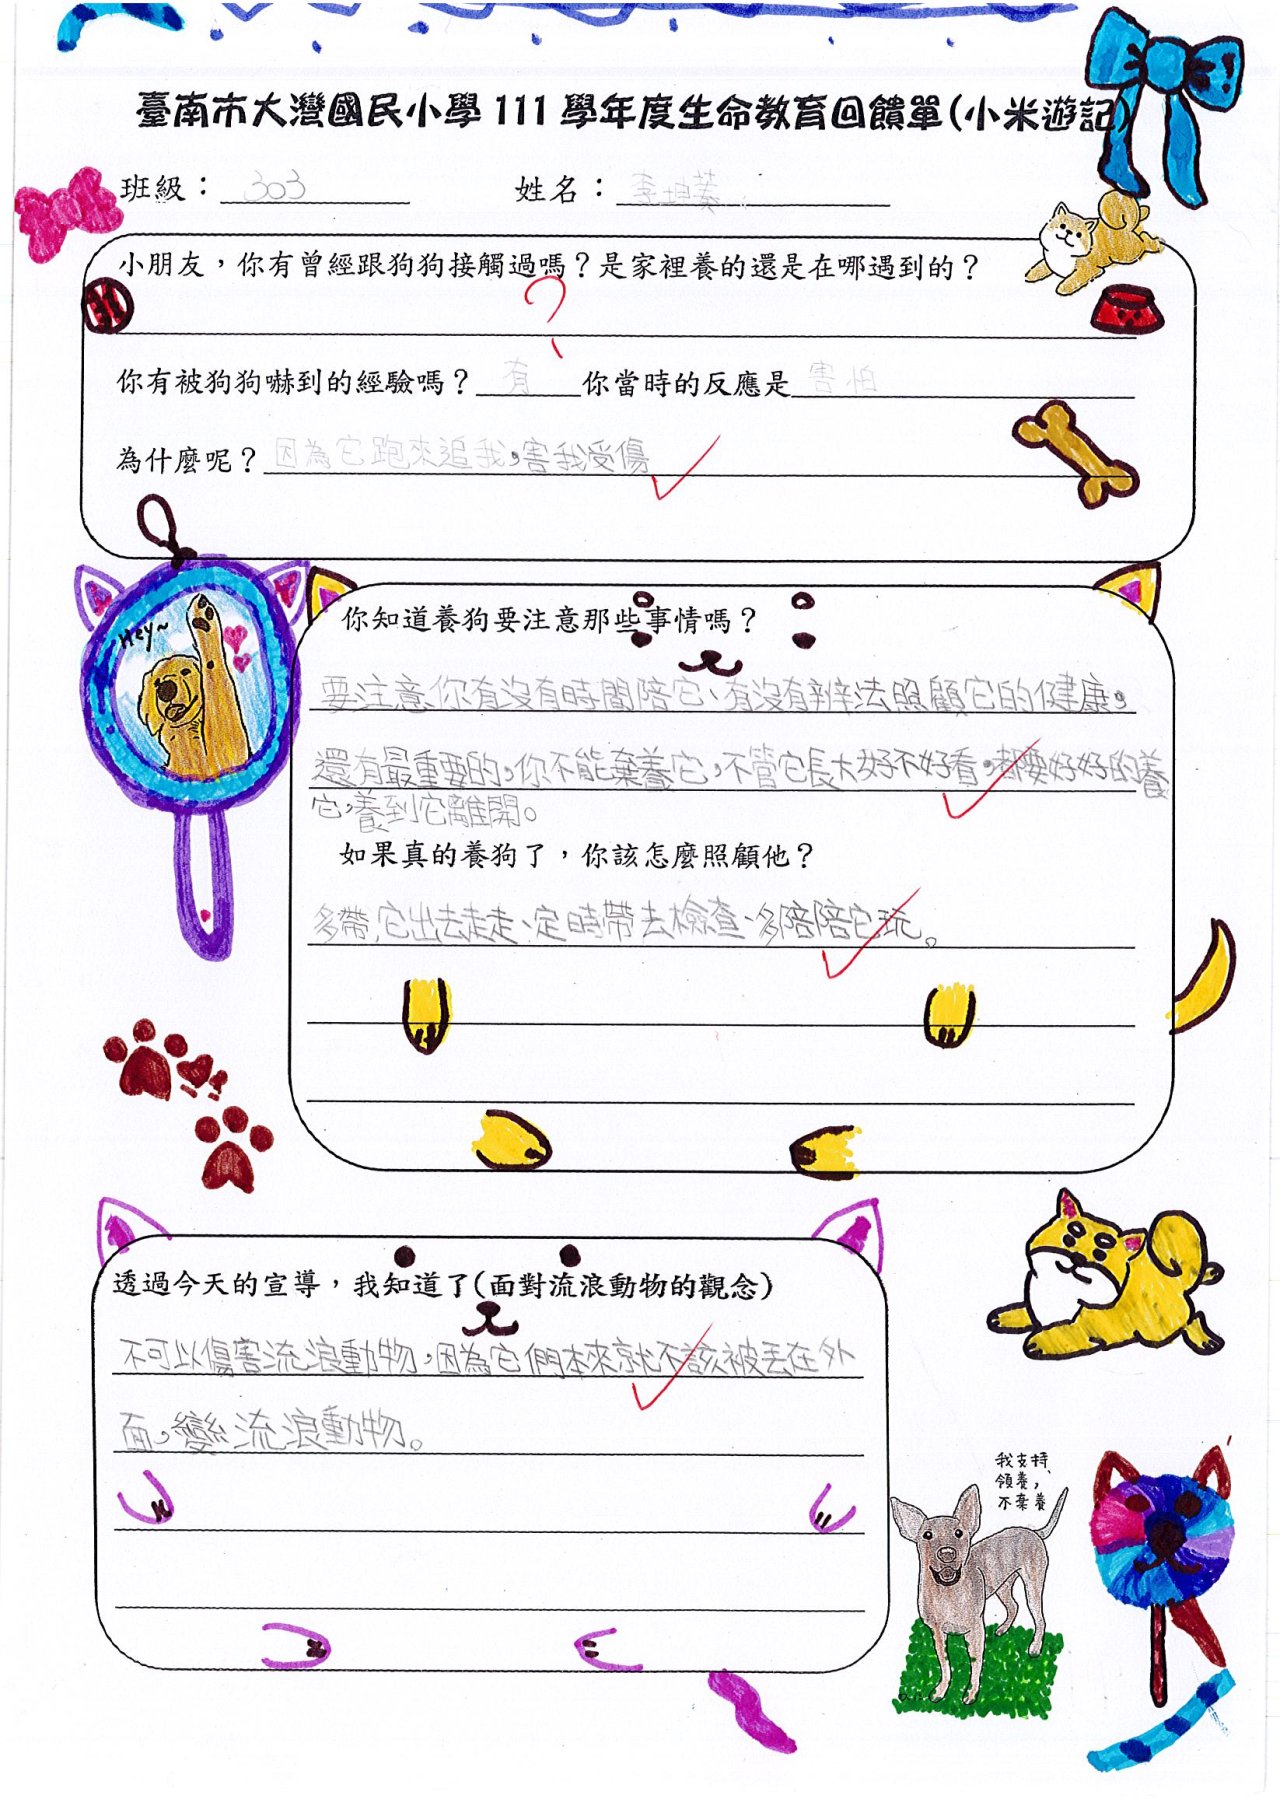 臺南市大灣國民小學 111 學年度生命教育回饋單(小米遊記)
班級：303 姓名：李
小朋友，你有曾經跟狗狗接觸過嗎？是家裡養的還是在哪遇到的？
?
你有被狗狗嚇到的經驗嗎？有 你當時的反應是害怕
為什麼呢？因為它跑來追我，害我受傷
Hey~
你知道養狗要注意那些事情嗎？
要注意你有沒有時間陪它、有沒有辦法照顧它的健康。
還有最重要的，你不能棄養它，不管它長大好不好看，都要好好的養
它，養到它離開。
如果真的養狗了，你該怎麼照顧他？
多帶它出去走走、定時帶去檢查、多陪陪它玩。
透過今天的宣導，我知道了(面對流浪動物的觀念)
不可以傷害流浪動物，因為它們本來就不該被丟在外
面，變流浪動物。
我支持
領養，
不棄養